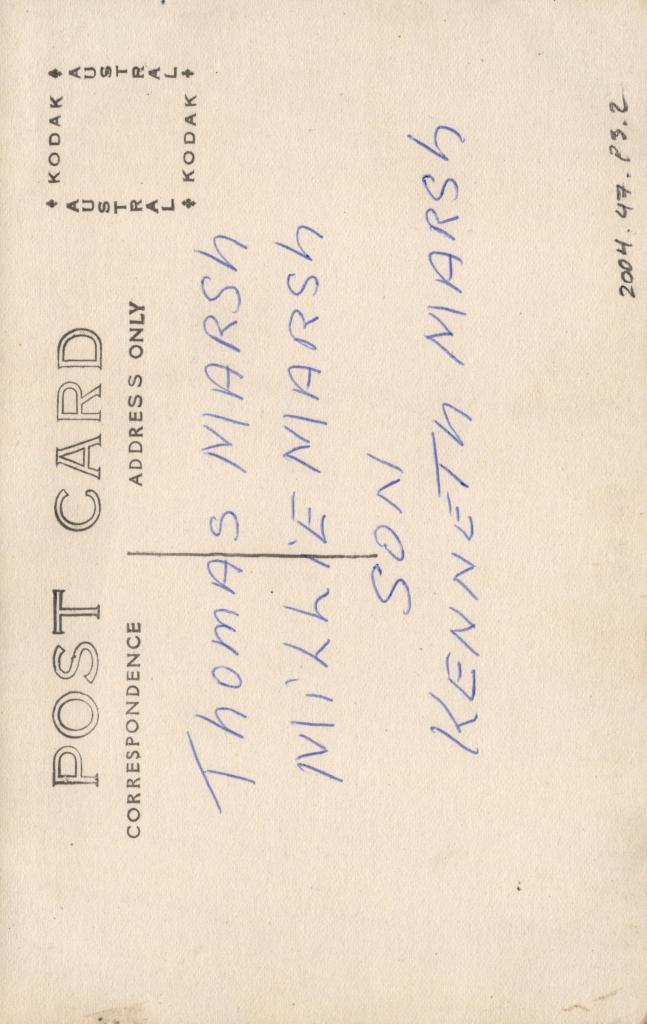 POST CARD
CORRESPONDENCE
ADDRESS ONLY
♦ KODAK ♦
AUSTRAL
AUSTRAL
♦ KODAK ♦
Thomas MARSh
MiLLiE MARSh
SON
KENNETh MARSh
2004.47.P3.2